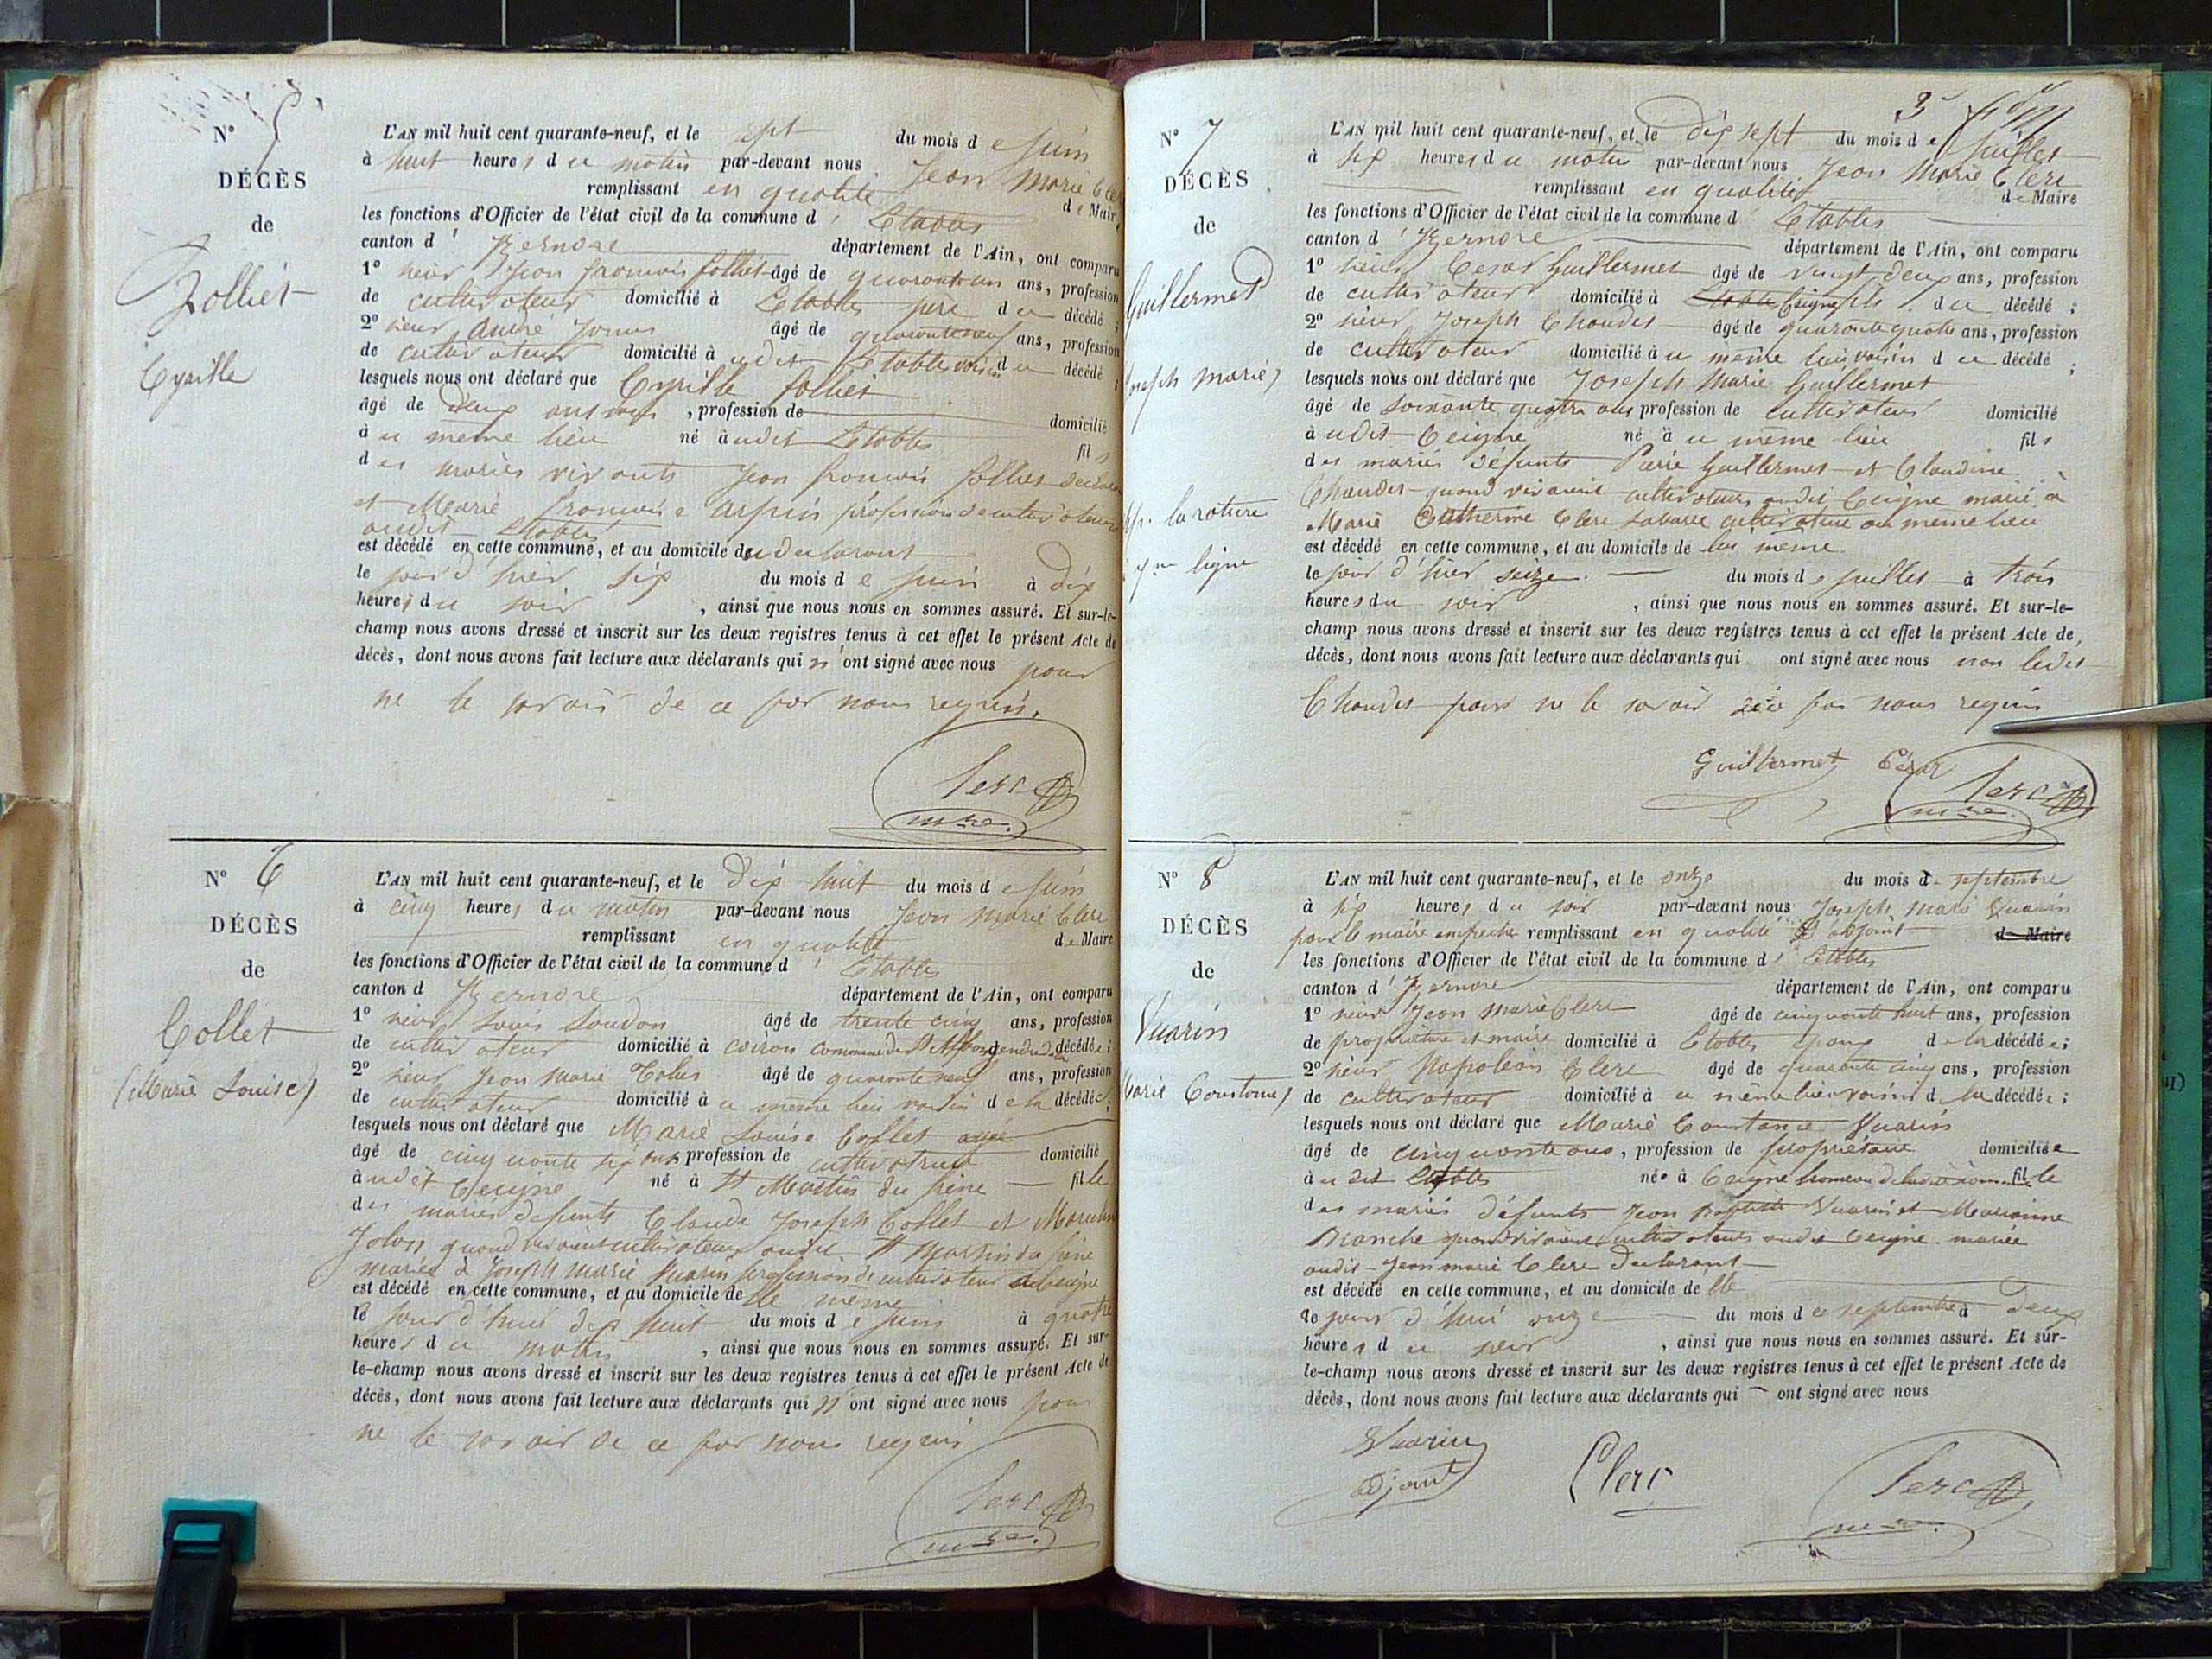 N° 5
DÉCÈS
de
Folliet
Cyrille
L'AN mil huit cent quarante-neuf, et le sept du mois de juin
à huit heures du matin par-devant nous Jean Marie Clerc
remplissant en qualité de Maire
les fonctions d'Officier de l'état civil de la commune d' Etables
canton d' Izernore département de l'Ain, ont comparu
1° sieur Jean françois folliet âgé de quarante un ans, profession
de cultivateur domicilié à Etables père du décédé ;
2° sieur André âgé de quarante neuf ans, profession
de cultivateur domicilié à udit Etables voisin du décédé ;
lesquels nous ont déclaré que Cyrille folliet
âgé de deux ans , profession de domicilié
à u même lieu né à udit Etables fils
des mariés vivants Jean francois folliet
et Marie françoise Arpin profession de cultivateurs
audit Etables
est décédé en cette commune, et au domicile du declarant
le jour d'hier six du mois de juin à dix
heures du soir , ainsi que nous nous en sommes assuré. Et sur-le-
champ nous avons dressé et inscrit sur les deux registres tenus à cet effet le présent Acte de
décès, dont nous avons fait lecture aux déclarants qui n'ont signé avec nous pour
ne le savoir de ce par nous requis.
Clerc
mre.
N° 6
DÉCÈS
de
Collet
(Marie Louise)
L'AN mil huit cent quarante-neuf, et le dix huit du mois de juin
à cinq heures du matin par-devant nous Jean Marie Clerc
remplissant en qualité de Maire
les fonctions d'Officier de l'état civil de la commune d' Etables
canton d Izernore département de l'Ain, ont comparu
1° sieur Louis Loudon âgé de trente cinq ans, profession
de cultivateur domicilié à commune de gendre de la décédée ;
2° sieur Jean Marie âgé de quarante neuf ans, profession
de cultivateur domicilié à u même lieu voisin de la décédée ;
lesquels nous ont déclaré que Marie Louise Collet
âgé de cinquante six ans profession de cultivatrice domicilié
à udit Ceigne né à St Martin du frêne fille
des mariés defunts Claude Joseph Collet et
quand vivaient cultivateurs audit St Martin du frêne
mariée à Joseph Marie Vuarin profession de cultivateur
est décédé en cette commune, et au domicile de lle même
le jour d'hui dix huit du mois de juin à quatre
heures du matin , ainsi que nous nous en sommes assuré. Et sur-
le-champ nous avons dressé et inscrit sur les deux registres tenus à cet effet le présent Acte de
décès, dont nous avons fait lecture aux déclarants qui n'ont signé avec nous pour
ne le savoir de ce par nous requis
Clerc
mre.
3e
N° 7
DÉCÈS
de
Guillermet
Joseph marie)
la roture
ligne
L'AN mil huit cent quarante-neuf, et le dix sept du mois de juillet
à six heures du matin par-devant nous Jean Marie Clerc
remplissant en qualité de Maire
les fonctions d'Officier de l'état civil de la commune d' Etables
canton d' Izernore département de l'Ain, ont comparu
1° sieur Cesar Guillermet âgé de vingt deux ans, profession
de cultivateur domicilié à Etables Ceigne fils du décédé ;
2° sieur Joseph Chaudet âgé de quarante quatre ans, profession
de cultivateur domicilié à u même lieu voisin du décédé ;
lesquels nous ont déclaré que Joseph Marie Guillermet
âgé de soixante quatre ans profession de cultivateur domicilié
à udit Ceigne né à u même lieu fils
des mariés défunts Pierre Guillermet et Claudine
Chaudet quand vivaient cultivateurs audit Ceigne marié à
Marie Catherine Clerc cultivature au même lieu
est décédé en cette commune, et au domicile de lui même
le jour d'hier seize du mois de juillet à trois
heures du soir , ainsi que nous nous en sommes assuré. Et sur-le-
champ nous avons dressé et inscrit sur les deux registres tenus à cet effet le présent Acte de
décès, dont nous avons fait lecture aux déclarants qui ont signé avec nous non ledit
Chaudet pour ne le savoir par nous requis
Guillermet César Clerc
mre.
N° 8
DÉCÈS
de
Vuarin
Marie Constance)
L'AN mil huit cent quarante-neuf, et le onze du mois de septembre
à six heures du soir par-devant nous Joseph Marie Vuarin
pour le maire empeché remplissant en qualité d'adjoint de Maire
les fonctions d'Officier de l'état civil de la commune d' Etables
canton d' Izernore département de l'Ain, ont comparu
1° sieur Jean Marie Clerc âgé de cinquante huit ans, profession
de propriétaire et maire domicilié à Etables epoux de la décédée ;
2° sieur Napoléon Clerc âgé de quarante cinq ans, profession
de cultivateur domicilié à u même lieu voisin de la décédée ;
lesquels nous ont déclaré que Marie Constance Vuarin
âgé de cinquante ans , profession de propriétaire domiciliée
à u dit Etables née à Ceigne hameau de ladite commune fille
des mariés défunts Jean Baptiste Vuarin et Marianne
quand vivaient cultivateurs audit Ceigne mariée
audit Jean marie Clerc declarant
est décédé en cette commune, et au domicile de lle
le jour d'hui onze du mois de septembre à deux
heures du soir , ainsi que nous nous en sommes assuré. Et sur-
le-champ nous avons dressé et inscrit sur les deux registres tenus à cet effet le présent Acte de
décès, dont nous avons fait lecture aux déclarants qui ont signé avec nous
Vuarin Clerc Clerc
adjoint mre.